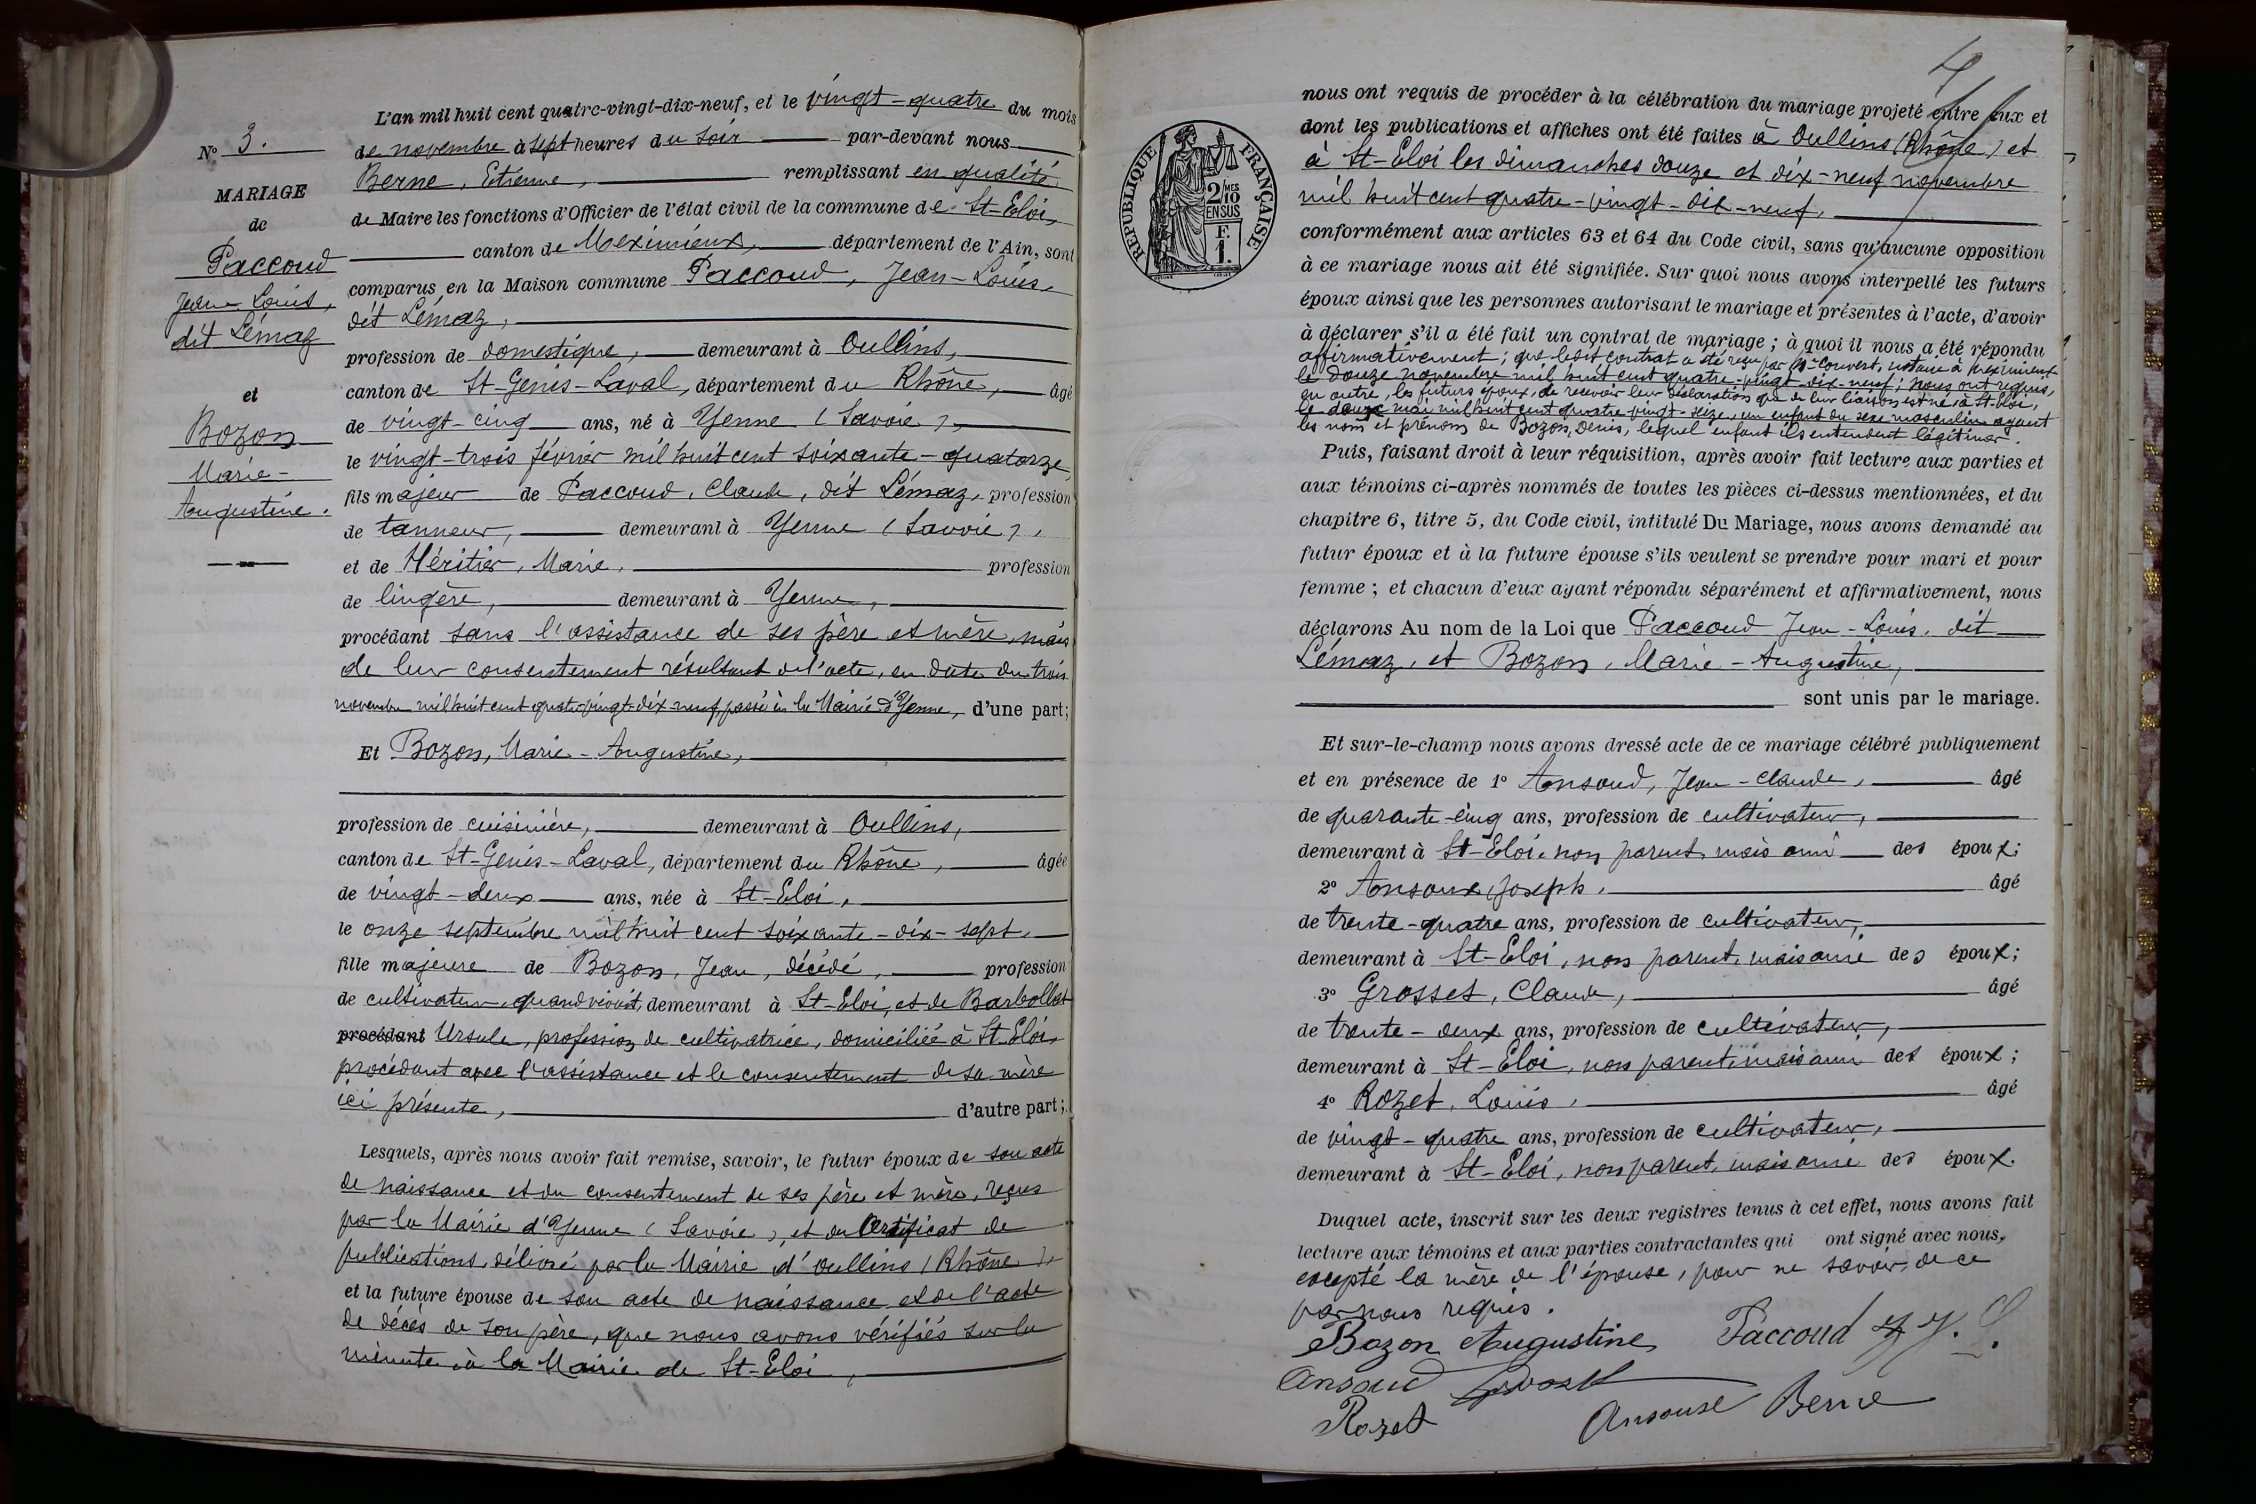 N° 3.
MARIAGE
de
Paccoud
Jean-Louis,
dit Lémaz
et
Bozon
Marie-
Augustine.
L'an mil huit cent quatre-vingt-dix-neuf, et le vingt-quatre du mois
de novembre à sept heures du soir par-devant nous
Berne, Etienne, remplissant en qualité
de Maire les fonctions d'Officier de l'état civil de la commune de St-Eloi,
canton de Meximieux, département de l'Ain, sont
comparus en la Maison commune Paccoud, Jean-Louis,
dit Lémaz,
profession de domestique, demeurant à Oullins,
canton de St-Genis-Laval, département du Rhône, âgé
de vingt-cinq ans, né à Yenne (Savoie),
le vingt-trois février mil huit cent soixante-quatorze,
fils majeur de Paccoud, Claude, dit Lémaz, profession
de tanneur, demeurant à Yenne (Savoie),
et de Héritier, Marie, profession
de lingère, demeurant à Yenne,
procédant sans l'assistance de ses père et mère, mais
de leur consentement résultant de l'acte, en date du trois
novembre mil huit cent quatre-vingt-dix-neuf, passé à la Mairie d'Yenne, d'une part;
Et Bozon, Marie-Augustine,
profession de cuisinière, demeurant à Oullins,
canton de St-Genis-Laval, département du Rhône, âgée
de vingt-deux ans, née à St-Eloi,
le onze septembre mil huit cent soixante-dix-sept,
fille majeure de Bozon, Jean, décédé, profession
de cultivateur, quand vivait, demeurant à St-Eloi, et de Barbollat
procédant Ursule, profession de cultivatrice, domiciliée à St-Eloi,
procédant avec l'assistance et le consentement de sa mère
ici présente, d'autre part;
Lesquels, après nous avoir fait remise, savoir, le futur époux de son acte
de naissance et du consentement de ses père et mère, reçus
par la Mairie d'Yenne (Savoie), et du certificat de
publications, délivré par la Mairie d'Oullins (Rhône),
et la future épouse de son acte de naissance et de l'acte
de décès de son père, que nous avons vérifiés sur la
minute à la Mairie de St-Eloi,
4
RÉPUBLIQUE FRANÇAISE
2 MES
10
EN SUS
F.
1.
nous ont requis de procéder à la célébration du mariage projeté entre eux et
dont les publications et affiches ont été faites à Oullins (Rhône) et
à St-Eloi les dimanches douze et dix-neuf novembre
mil huit cent quatre-vingt-dix-neuf,
conformément aux articles 63 et 64 du Code civil, sans qu'aucune opposition
à ce mariage nous ait été signifiée. Sur quoi nous avons interpellé les futurs
époux ainsi que les personnes autorisant le mariage et présentes à l'acte, d'avoir
à déclarer s'il a été fait un contrat de mariage; à quoi il nous a été répondu
affirmativement; que ledit contrat a été reçu par Me Convert, notaire à Meximieux
le douze novembre mil huit cent quatre-vingt-dix-neuf; nous ont requis,
en outre, les futurs époux, de recevoir leur déclaration que de leur liaison est né à St-Eloi,
le douze mai mil huit cent quatre-vingt-seize, un enfant du sexe masculin ayant
les nom et prénoms de Bozon, Denis, lequel enfant ils entendent légitimer.
Puis, faisant droit à leur réquisition, après avoir fait lecture aux parties et
aux témoins ci-après nommés de toutes les pièces ci-dessus mentionnées, et du
chapitre 6, titre 5, du Code civil, intitulé Du Mariage, nous avons demandé au
futur époux et à la future épouse s'ils veulent se prendre pour mari et pour
femme; et chacun d'eux ayant répondu séparément et affirmativement, nous
déclarons Au nom de la Loi que Paccoud Jean-Louis, dit
Lémaz, et Bozon, Marie-Augustine,
sont unis par le mariage.
Et sur-le-champ nous avons dressé acte de ce mariage célébré publiquement
et en présence de 1° Ansoud, Jean-Claude, âgé
de quarante-cinq ans, profession de cultivateur,
demeurant à St-Eloi, non parent, mais ami des époux;
2° Ansoux, Joseph, âgé
de trente-quatre ans, profession de cultivateur,
demeurant à St-Eloi, non parent, mais ami des époux;
3° Grosset, Claude, âgé
de trente-deux ans, profession de cultivateur,
demeurant à St-Eloi, non parent, mais ami des époux;
4° Rozet, Louis, âgé
de vingt-quatre ans, profession de cultivateur,
demeurant à St-Eloi, non parent, mais ami des époux.
Duquel acte, inscrit sur les deux registres tenus à cet effet, nous avons fait
lecture aux témoins et aux parties contractantes qui ont signé avec nous,
excepté la mère de l'épouse, pour ne savoir, de ce
par nous requis.
Bozon Augustine Paccoud
Ansoud
Rozet Ansoux Berne